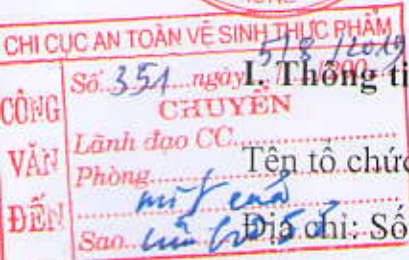 CHI CỤC AN TOÀN VỆ SINH THỰC PHẨM
CÔNG VĂN ĐẾN
Số 351 ngày 5/8/2019
CHUYỂN
Lãnh đạo CC
Phòng
Sao
I. Thông ti
Tên tổ chức
Địa chỉ: Số